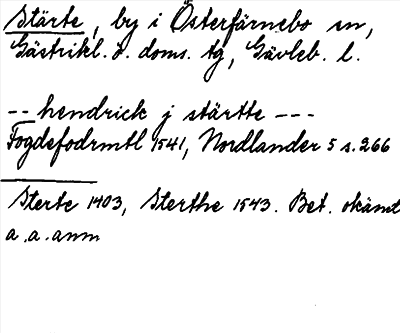 Stärte, by i Österfärnebo sn,
Gästrikl. ö. doms. tg, Gävleb. l.
-- hendrick j stärtte ---
Fogdefodrmtl 1541, Nordlander 5 s. 266
Sterte 1403, Sterthe 1543. Bet. okänt
a.a. anm